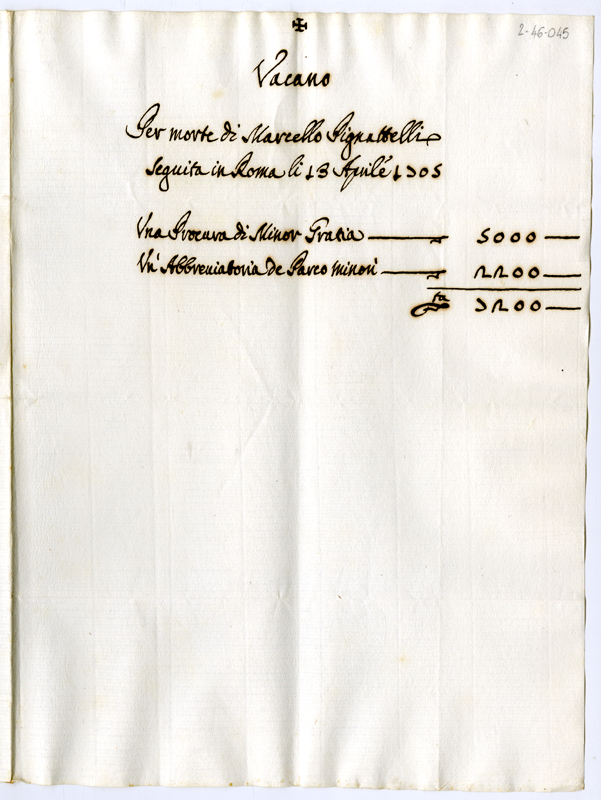 ✠
2-46-045
Vacano
Per morte di Marcello Pignattelli
seguita in Roma li 13 Aprile 1705
Una Procura di Minor Gratia 5000
Un' Abbreviatoria de Parco minori 2200
7200